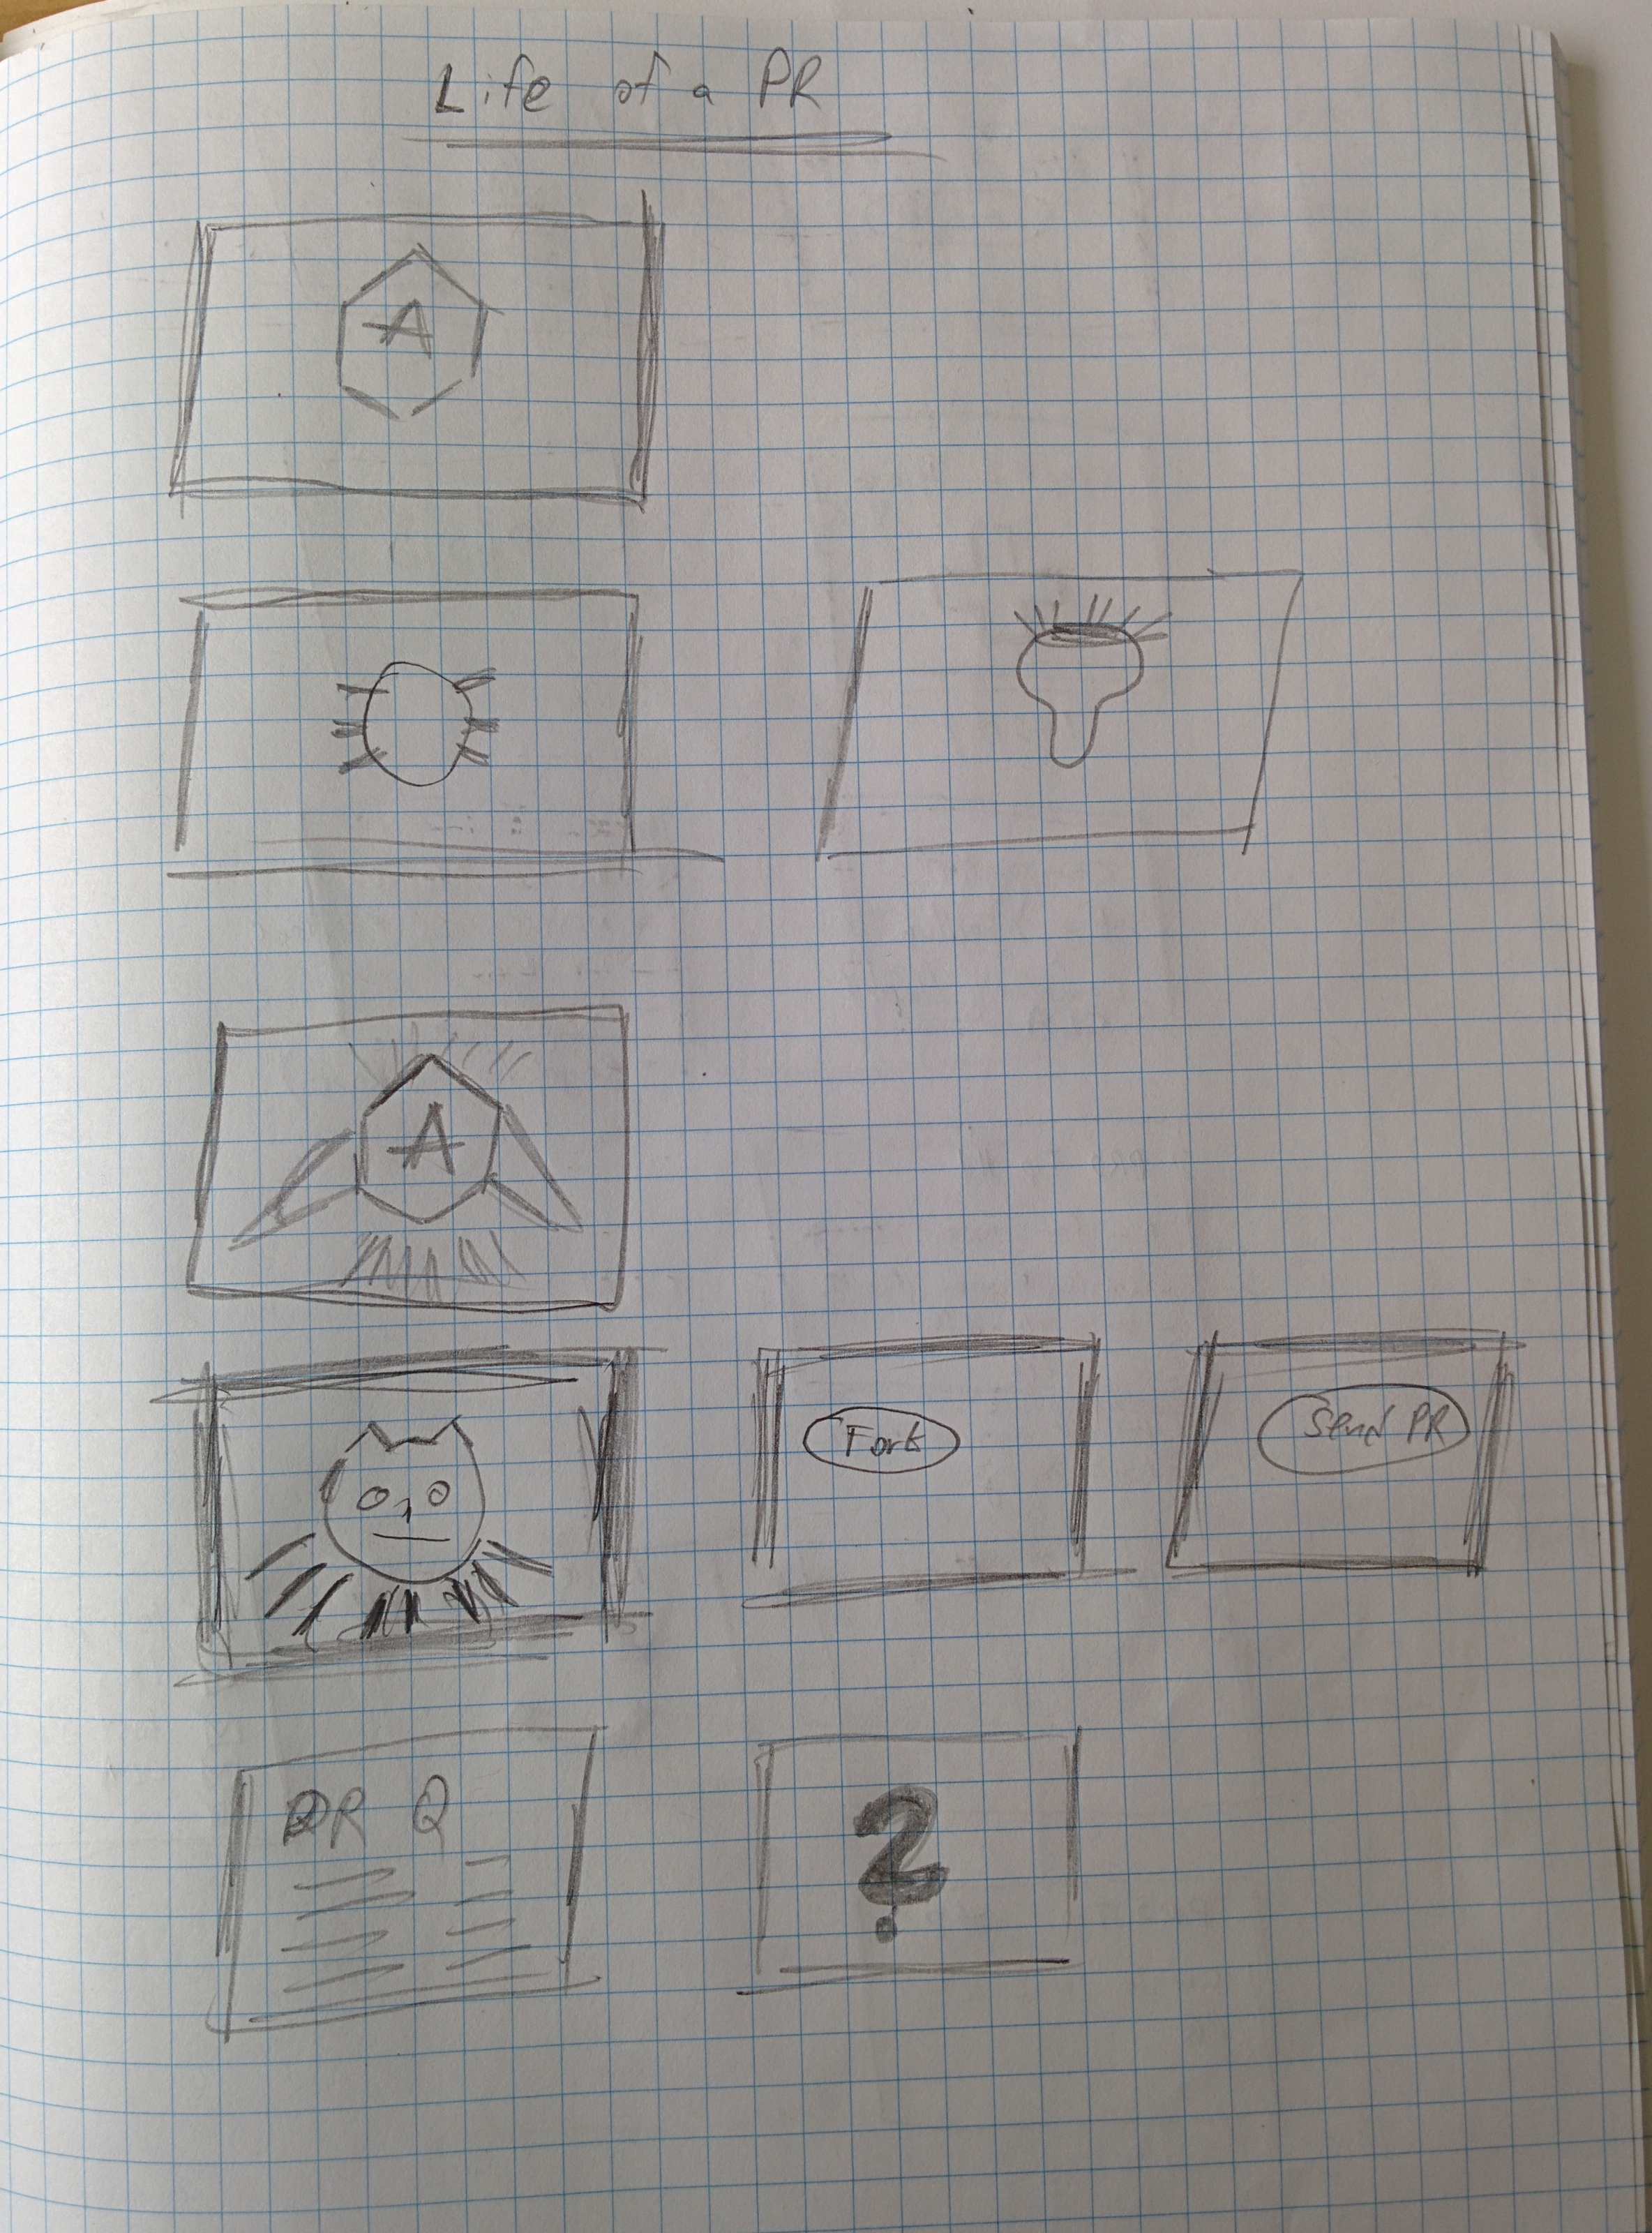 Life of a PR
A
A
Fork
Send PR
PR Q
?